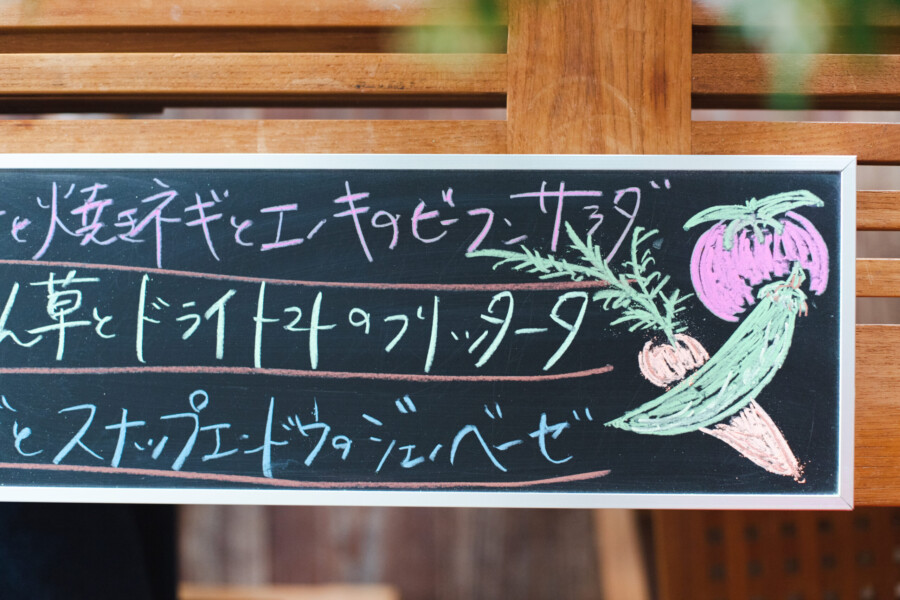 と焼きネギとエノキのビーフンサラダ
ん草とドライトマトのフリッタータ
とスナップエンドウのジェノベーゼ